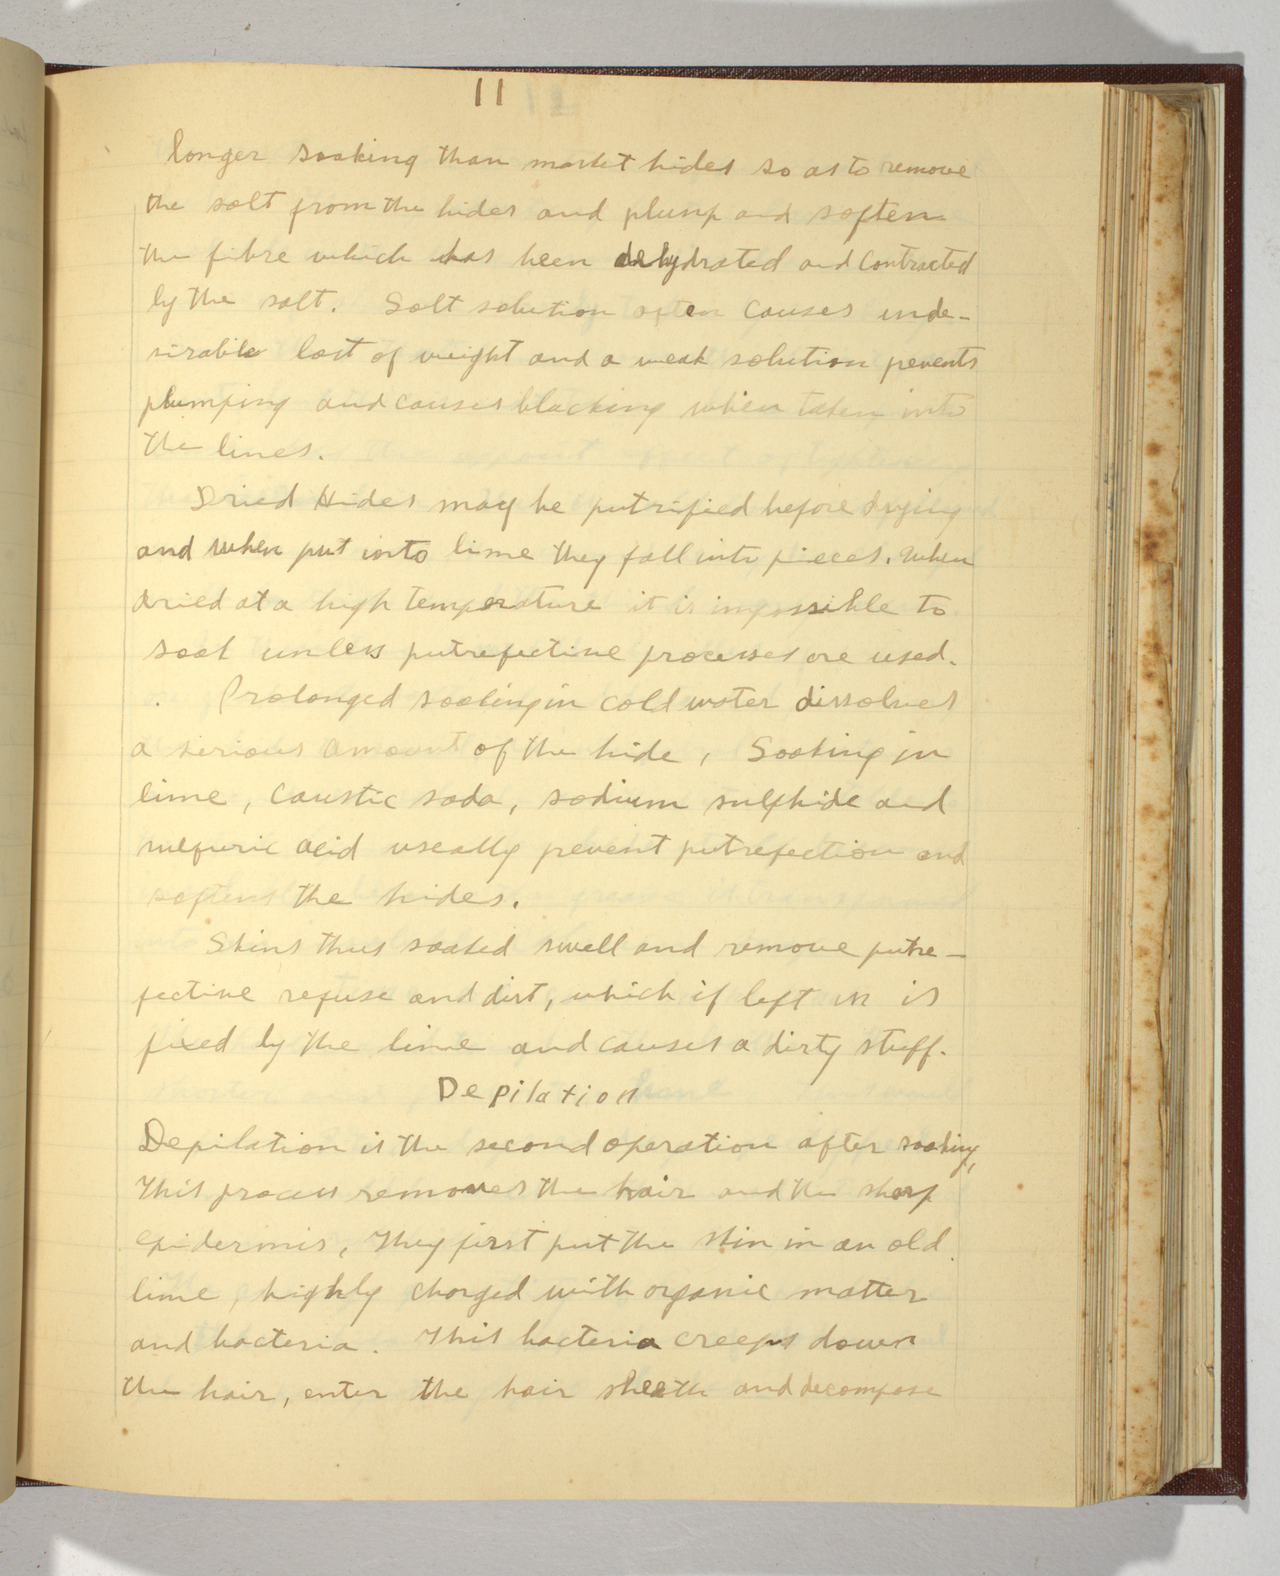 11
longer soaking than market hides so as to remove
the salt from the hides and plump and soften
the fibre which has been dehydrated and contracted
by the salt. Salt solution often causes unde-
sirable lost of weight and a weak solution pevents
plumping and causes blacking when taken into
the limes.
Dried Hides may be putrified before drying
and when put into lime they fall into pieces. When
dried at a high temperature it is impossible to
soak unless putrefective processes are used.
Prolonged soaking in cold water dissolves
a serious amount of the hide, Soaking in
lime, caustic soda, sodium sulphide and
sulfuric acid useally pevent putrefection and
softens the hides.
Skins thus soaked swell and remove putre-
fective refuse and dirt, which if left in is
fixed by the lime and causes a dirty stuff.
Depilation
Depilation is the second operation after soaking,
This process removes the hair and the sharp
epidermis, They first put the skin in an old
lime, highly charged with organic matter
and bacteria. This bacteria creeps down
the hair, enter the hair sheath and decompose